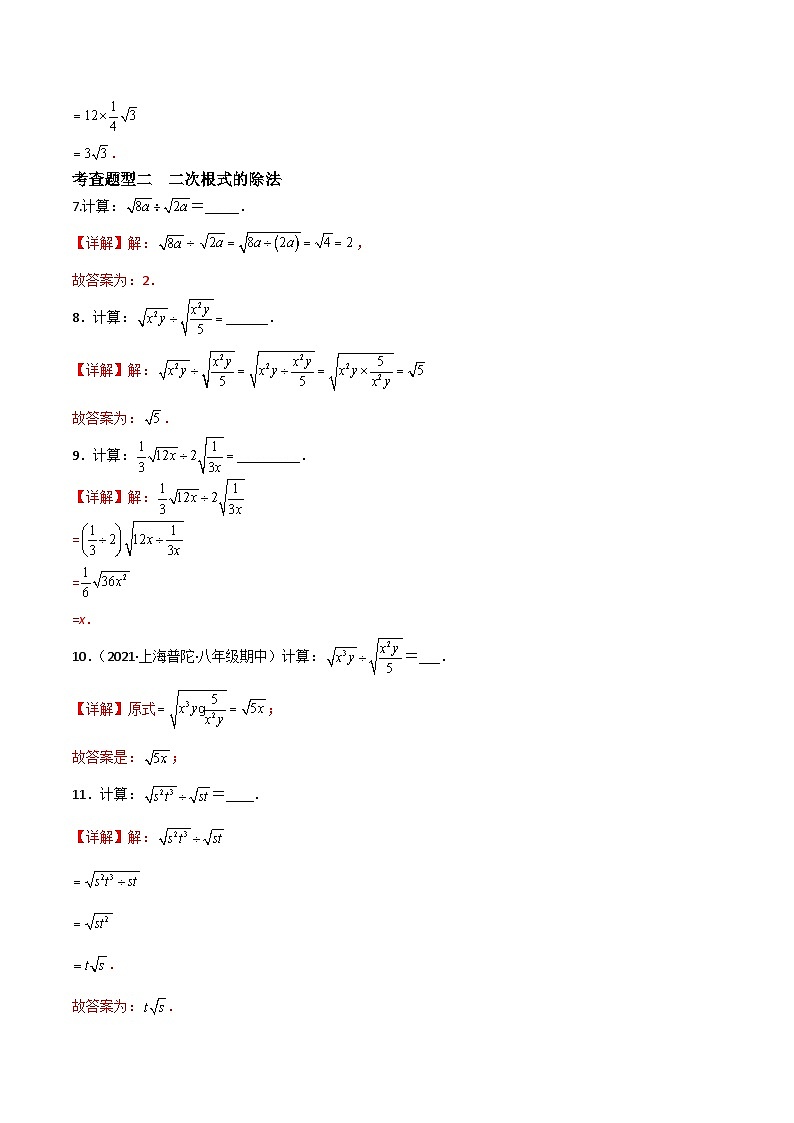 =12×1/4√3
=3√3．
考查题型二 二次根式的除法
7.计算：√(8a)÷√(2a)＝_____．
【详解】解：√(8a)÷√(2a)=√(8a÷(2a))=√4=2，
故答案为：2．
8．计算：√(x²y)÷√(x²y/5)=______．
【详解】解：√(x²y)÷√(x²y/5)=√(x²y÷x²y/5)=√(x²y×5/(x²y))=√5
故答案为：√5．
9．计算：1/3√(12x)÷2√(1/(3x))=_________．
【详解】解：1/3√(12x)÷2√(1/(3x))
=(1/3÷2)√(12x÷1/(3x))
=1/6√(36x²)
=x．
10.（2021·上海普陀·八年级期中）计算：√(x³y)÷√(x²y/5)＝___．
【详解】原式=√(x³yg5/(x²y))=√(5x)；
故答案是：√(5x)；
11．计算：√(s²t³)÷√(st)＝____．
【详解】解：√(s²t³)÷√(st)
=√(s²t³÷st)
=√(st²)
=t√s．
故答案为：t√s．